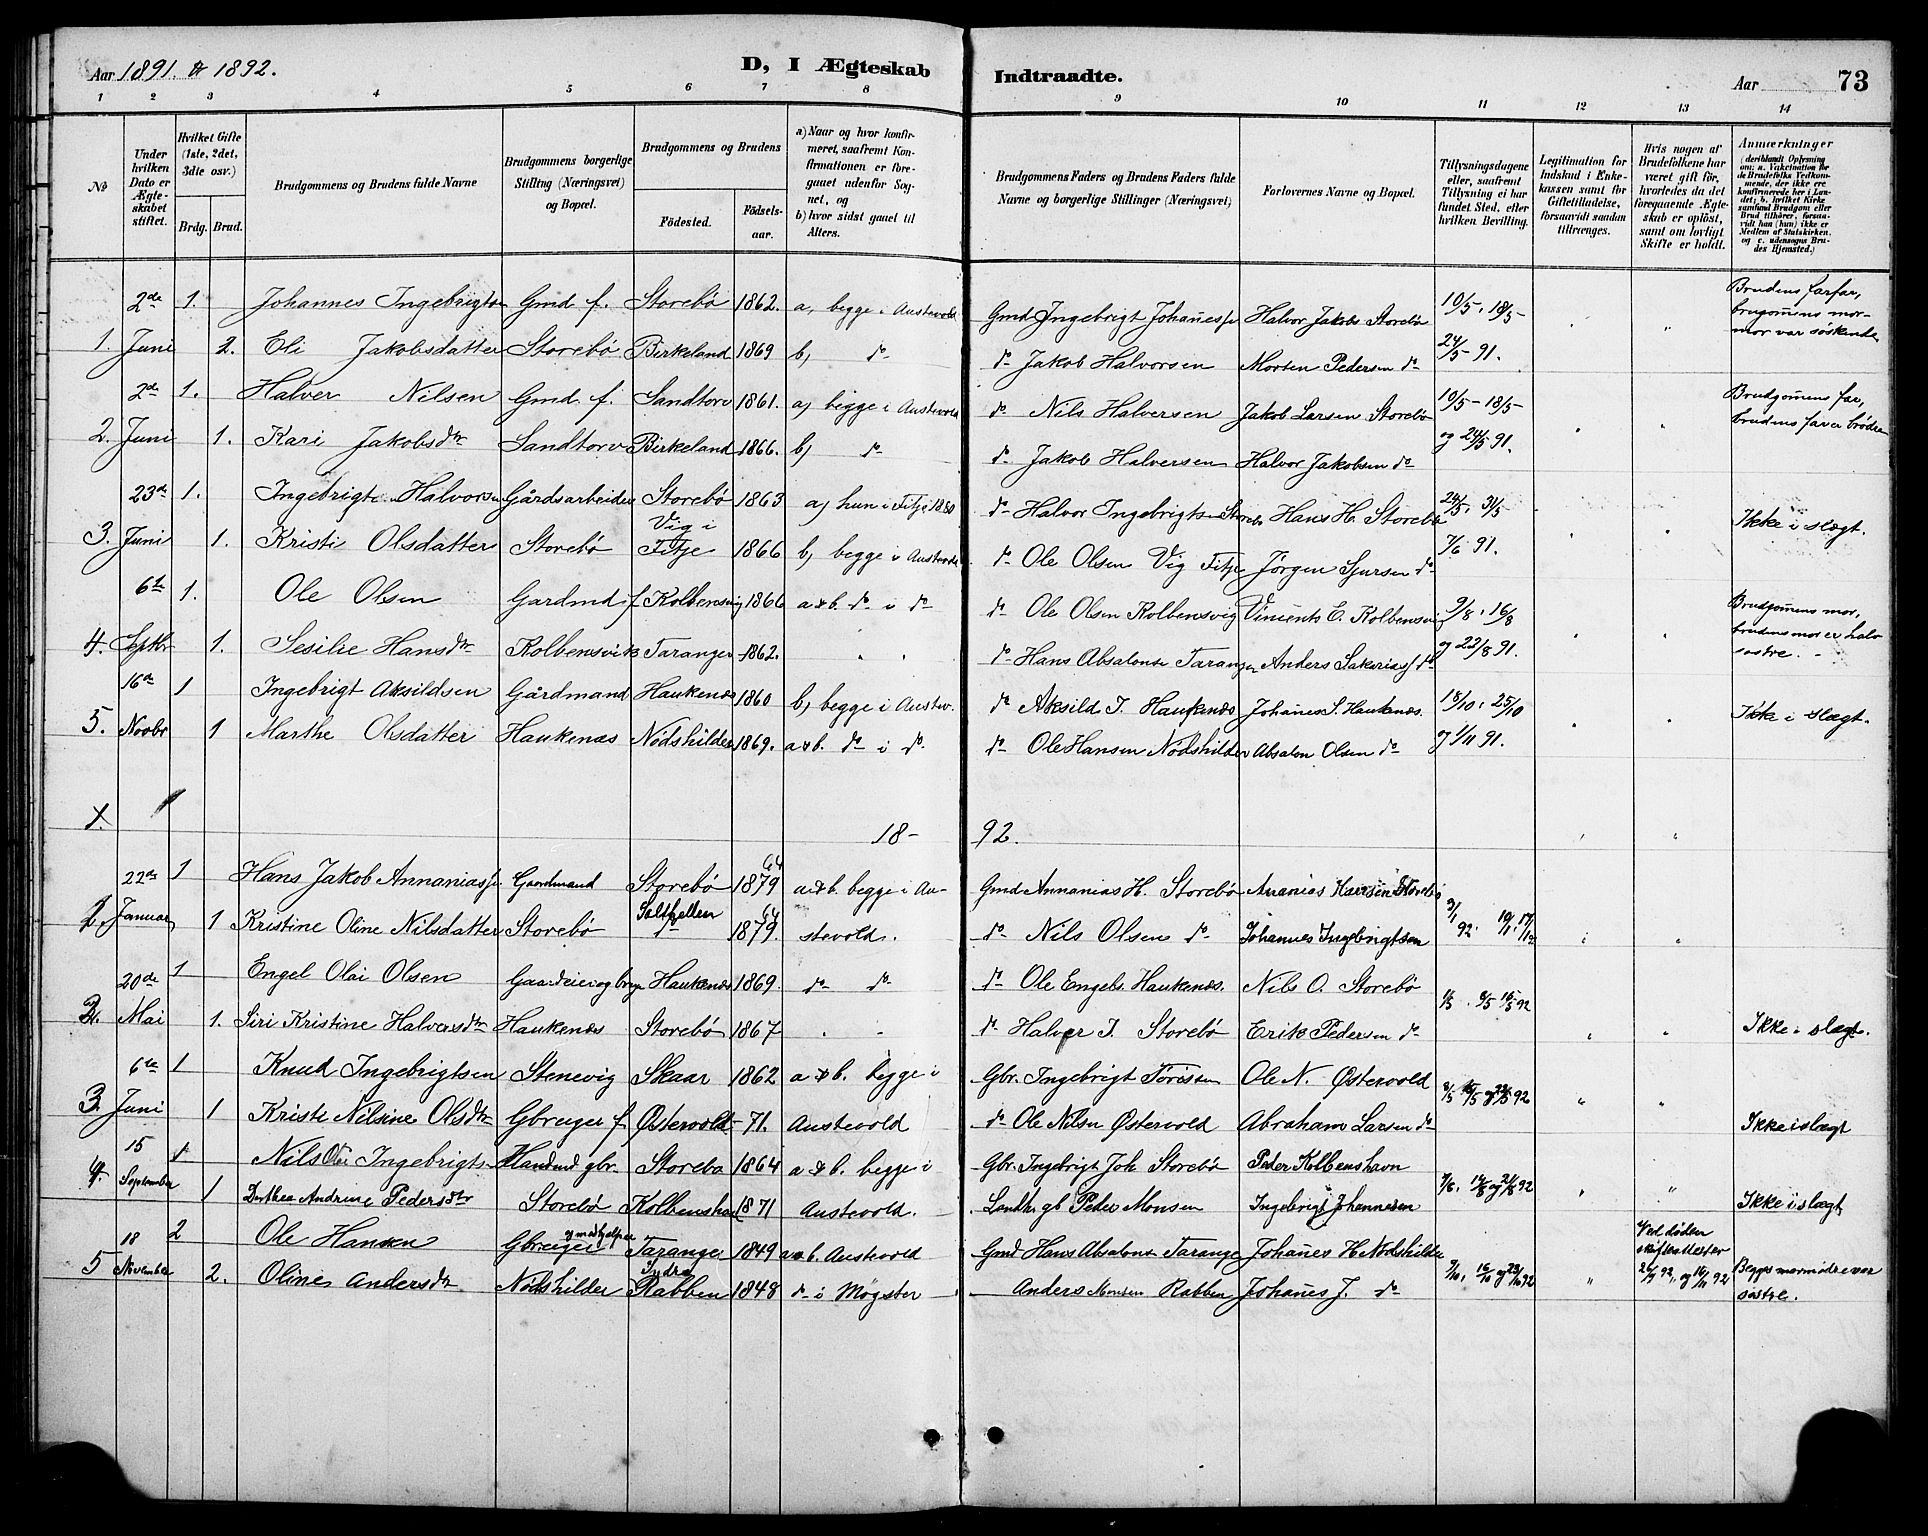 Aar 1891. & 1892. D, I Ægteskab Indtraadte. Aar 73
1 2 3 4 5 6 7 8 9 10 11 12 13 14
No
Under hvilken Dato er Ægteskabet stiftet.
Hvilket Gifte (1ste, 2det, 3die osv.)
Brdg. Brud.
Brudgommens og Brudens fulde Navne
Brudgommens borgerlige Stilling (Næringsvei) og Bopæl.
Brudgommens og Brudens
Födested. Födselsaar.
a) Naar og hvor konfirmeret, saafremt Konfirmationen er foregaaet udenfor Sognet, og
b) hvor sidst gaaet til Alters.
Brudgommens Faders og Brudens Faders fulde Navne og borgerlige Stillinger (Næringsvei)
Forlovernes Navne og Bopæl.
Tillysningsdagene eller, saafremt Tillysning ei har fundet Sted, efter hvilken Bevilling.
Legitimation for Indskud i Enkekassen samt for Giftetilladelse, forsaavidt saadan tiltrænges.
Hvis nogen af Brudefolkene har været gift för, hvorledes da det foregaaende Ægteskab er oplöst, samt om lovligt Skifte er holdt.
Anmærkninger
(deriblandt Oplysning om: a. Vaksination for de Brudefolks Vedkommende, der ikke ere konfirmerede her i Landet; b. hvilket Kirkesamfund Brudgom eller Brud tilhörer, forsaavidt han (hun) ikke er Medlem af Statskirken, og c. udensogns Brudes Hjemsted.)
2de 1. Johannes Ingebrigtsen Gmd f. Storebö 1862. a, begge i Austevold Gmd Ingebrigt Johanes Halvor Jakobs Storebö 10/5, 18/5 Brudens farfar, brugomens mormor var söskende
1. Juni 2. Eli Jakobsdatter Storebö Birkeland 1869 b, do do Jakob Halvorsen Morten Pedersen do 24/5 91.
2de 1. Halver Nilsen Gmd f. Sandtorv 1861. a) begge i Austevold do Nils Halversen Jakob Larsen Storebö 10/5 - 18/5 Brudgomens far, brudens far er brödre
2. Juni 1. Kari Jakobsdtr Sandtorv Birkeland 1866. b) do do Jakob Halversen Halvor Jakobsen do og 24/5 91.
23de 1. Ingebrigt Halvorsen Gårdsarbeider Storebö 1863 a) hun i Fitje 1880 do Halvor Ingebrigts Storebö Hans H. Storebö 24/5, 31/5 Ikke i slægt.
3. Juni 1. Kristi Olsdatter Storebö Vig i Fitje 1866 b, begge i Austevold do Ole Olsen Vig Fitje Jörgen Sjursen do 7/6 91.
6te 1. Ole Olsen Gardmd f. Kolbensvig 1866 a&b. do i do do Ole Olsen Kolbensvig Vincents E. Kolbensvig 9/8, 16/8 Brudgomens mor, brudens mor er halvsöstre.
4. Septbr 1. Sesilie Hansdtr Kolbensvik Taranger 1862. do Hans Absalons Taranger Anders Sakerias do og 23/8 91.
16de 1 Ingebrigt Aksildsen Gårdmand Haukenæs 1860 b, begge i Austev. do Aksild I. Haukenæs Johanes S. Haukenæs. 18/10, 25/10 Ikke i slægt.
5. Novbr 1 Marthe Olsdatter Haukenæs Nödshilder 1869. a&b. do i do. do Ole Hansen Nödshilder Absalon Olsen do og 1/11 91.
18-92.
22de 1 Hans Jakob Annanias Gaardmand Storebö 1879 64 a&b. begge i Au- Gmd Annanias H. Storebö Ananias Storebö 3/1 92.
Januar 1 Kristine Oline Nilsdatter Storebö 1879. 64 stevold. do Nils Olsen do Johannes Ingebrigtsen
20de 1 Engel Olai Olsen Gaardeier og Haukenæs 1869. do do do Ole Engels. Haukenæs. Nils O. Storebö 1/5, 8/5 15/5 92
2. Mai 1. Siri Kristine Halversdtr Haukenæs Storebö 1867 do Halver I. Storebö Erik Pedersen do Ikke i slægt.
6te 1 Knud Ingebrigtsen Stenevig Skaar 1862 a&b. begge i Gbr. Ingebrigt Törissen Ole N. Østervold
3. Juni 1 Kristi Nilsine Olsdtr Gbruger f. Østervold - 71. Austevold do Ole Nilsen Østervold Abraham Larsen do Ikke i slægt
15 1 Nils Olai Ingebrigts Handmd gbr. Storebø 1864 a&b. begge i Gbr. Ingebrigt Joh Storebø Peder Kolbenshavn
4. September 1 Dorthea Andrine Pedersdtr Storebø Kolbenshavn 1871 Austevold. Landh. gb Peder Monsen Ingebrigt Johannesen 7/8, 14/8 og 21/8 92 Ikke i slægt
18 2 Ole Hansen Gbruger Taranger 1849 a&b. Austevold Gmd Hans Absalons Taranger Johanes H Nödshilder Ved döden skifteattester
5 November 2. Oline Andersdtr Nödshilder Indre Rabben 1848 do i Møgster Anders Monsen Rabben Johanes J. do 9/10, 16/10 og 23/10 92 Begges mormödre var söstre.